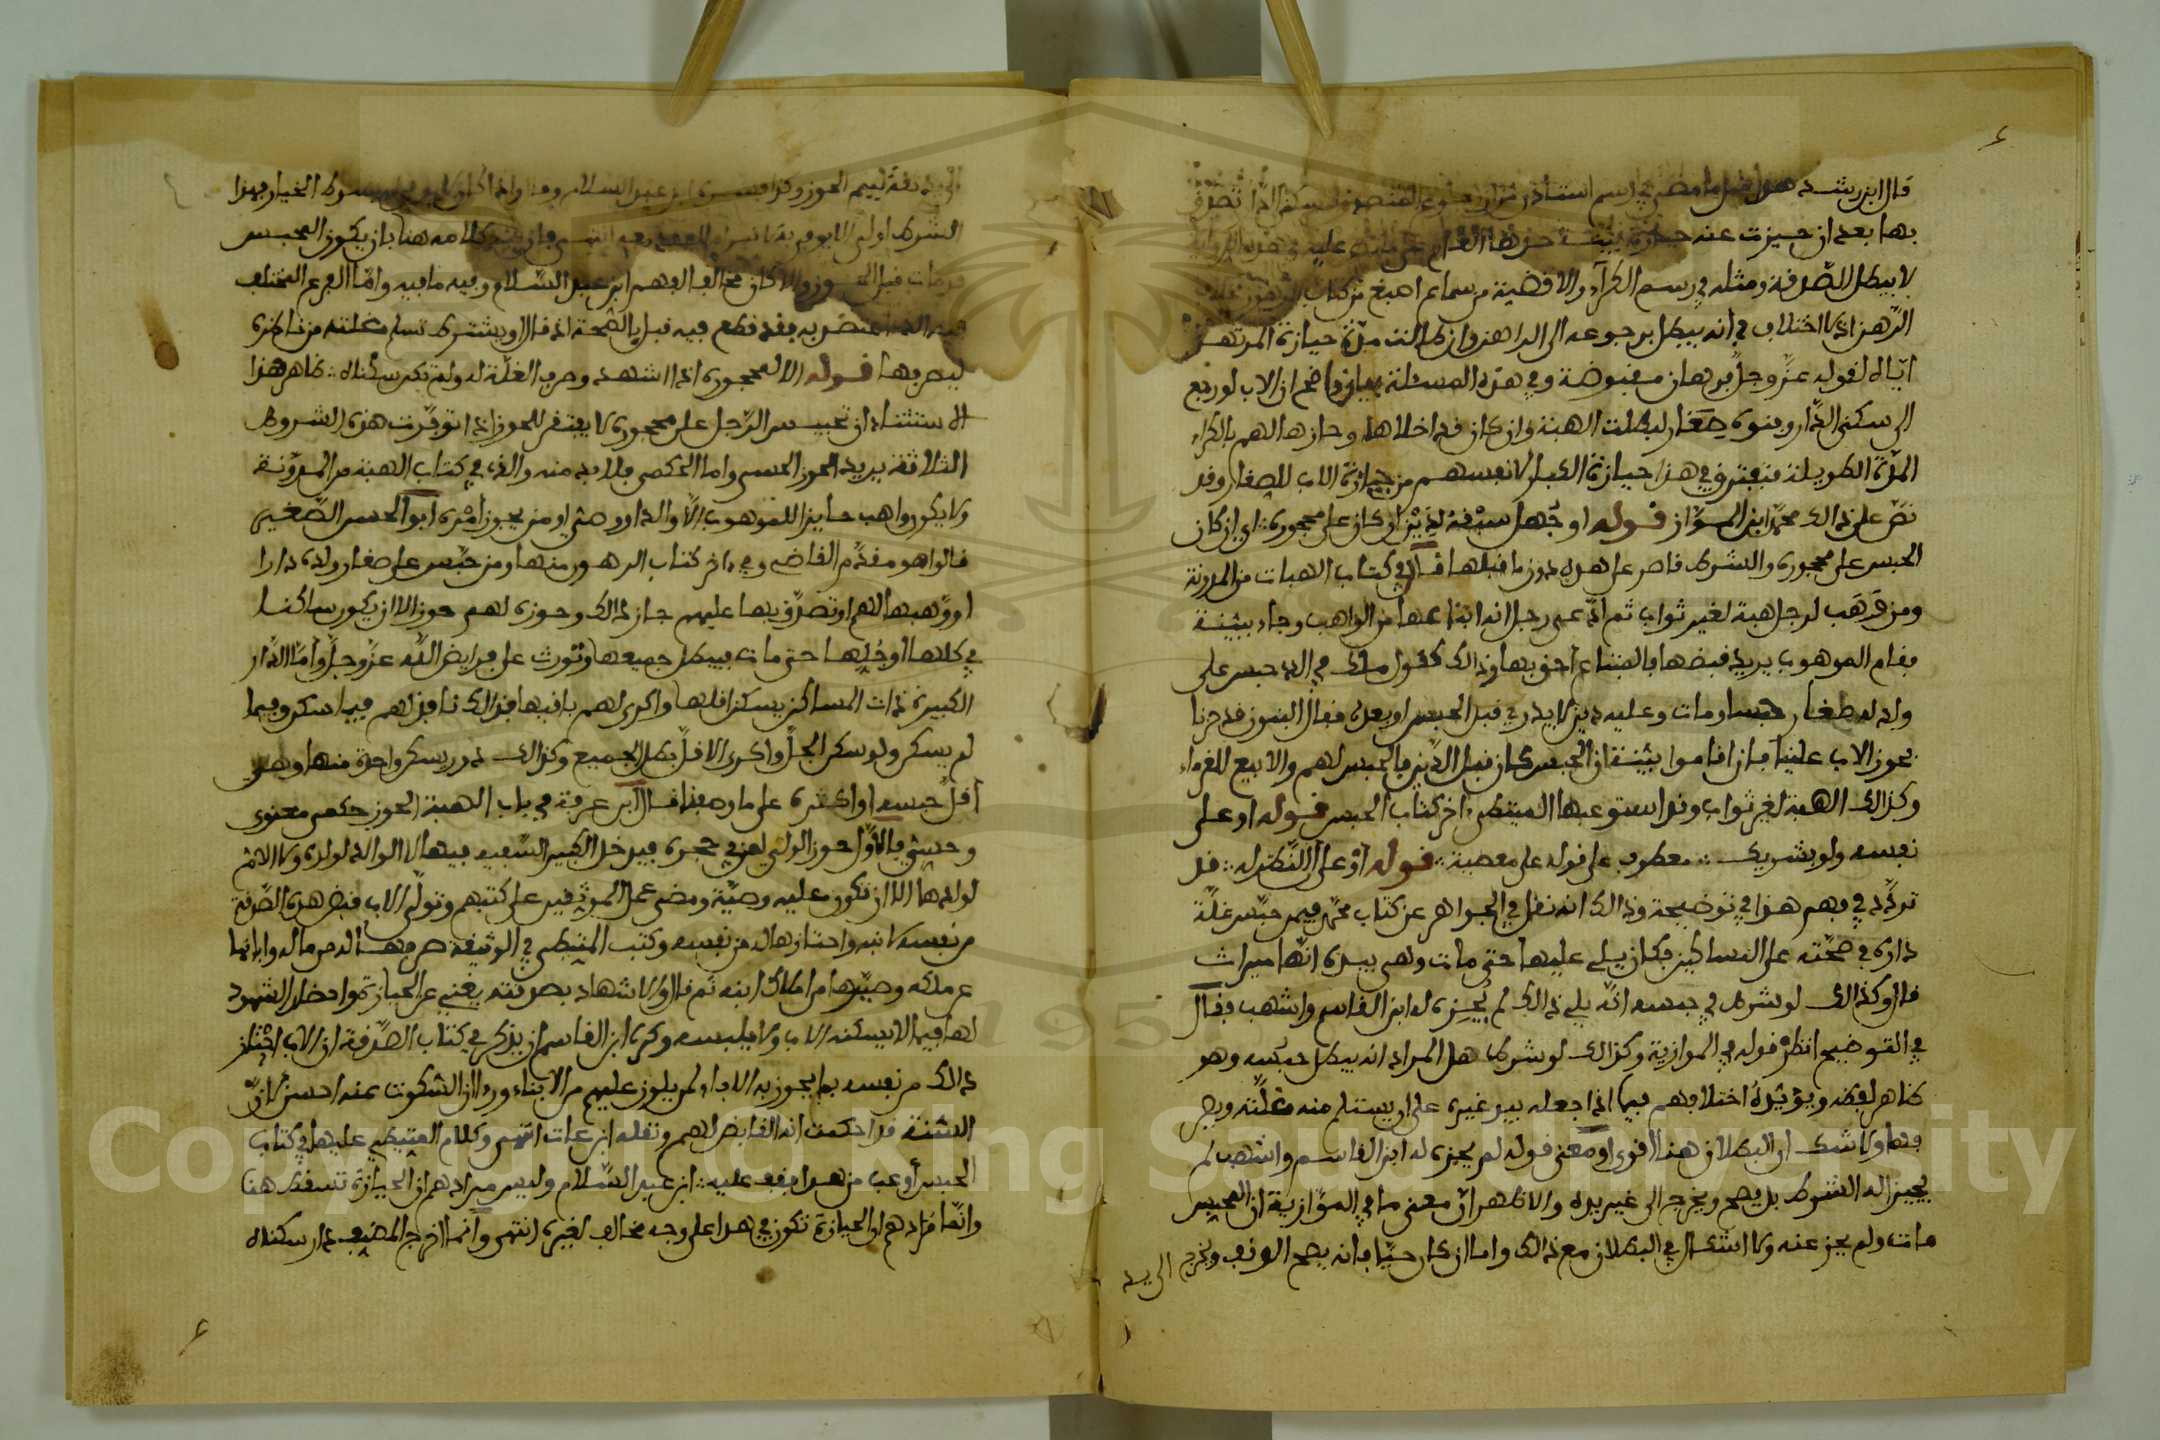 قال ابن رشد هذا مثل ما مضى في رسم استأذن
بها بعد ان حيزت عنه حيازة بينة
لا يبطل الصدقة ومثله في رسم الكراء والاقضية من سماع اصبغ من كتاب
الرهن اذ لا اختلاف في انه يبطل برجوعه الى الراهن وان طالت مدة حيازة المرتهن
اياه لقوله عز وجل فرهان مقبوضة وفي هذه المسئلة بيان واضح ان الاب لو رجع
الى سكنى الدار وبنوه صغار لبطلت الهبة وان كان قد اخلاها وحازها لهم بالكراء
المدة الطويلة فيفترق في هذا حيازة الكبار لانفسهم من حيازة الاب للصغار وقد
نص على ذالك محمد ابن المواز قوله او جهل سبقه لدين ان كان على محجوره اي ان كان
الحبس على محجوره والشرط قاصر على هذه دون ما قبلها قال في كتاب الهبات من المدونة
ومن وهب لرجل هبة لغير ثواب ثم ادعى رجل انه ابتاعها من الواهب وجاء ببينة
فقام الموهوب يريد قبضها فالمبتاع احق بها وذالك كقول مالك في الذي حبس على
ولد له صغار حبسا ومات وعليه دين لا يدرى قبل الحبس او بعده فقال البنون قد حزنا
بحوز الاب علينا فان اقاموا بينة ان الحبس كان قبل الدين فالحبس لهم والا بيع للغرماء
وكذالك الهبة لغير ثواب وقد استوعبها المتيطي ءاخر كتاب الحبس قوله او على
نفسه ولو بشريك معطوف على قوله على معصية قوله او على ان النظر له قل
تردد في فهم هذا في توضيحه وذالك انه نقل في الجواهر عن كتاب محمد فيمن حبس غلة
داره في صحته على المساكين فكان يلي عليها حتى مات وهي بيده انها ميراث
قال وكذالك لو شرط في حبسه انه يلي ذالك لم يجزه له ابن القاسم واشهب فقال
في التوضيح انظر قوله في الموازية وكذالك لو شرط هل المراد انه يبطل حبسه وهو
ظاهر لفظه ويؤيده اختلافهم فيما اذا جعله بيد غيره على ان يستلم منه غلته ويصر
فها ولا شك ان البطلان هنا اقوى او معنى قوله لم يجزه له ابن القاسم واشهب لم
يجيزا له الشرط بل يصح ويخرج الى غير يده والاظهر ان معنى ما في الموازية ان المحبس
مات ولم يحز عنه ولا اشكال في البطلان مع ذالك واما ان كان حيا فانه يصح الوقف ويخرج
الى يد
الى يد ثقة ليتم الحوز وكذا فسره ابن عبد السلام
الشرط
قد مات قبل الحوز والا كان مخالفا لفهم ابن عبد السلام وفيه ما فيه واما الفرع المختلف
فيه الذي اعتضد به فقد قطع فيه قبل بالصحة اذ قال او يشترط تسلم غلته من ناظره
ليصرفها قوله الا لمحجوره اذا اشهد وصرف الغلة له ولم تكن سكناه ظاهر هذا
الاستثناء ان تحبيس الرجل على محجوره لا يفتقر للحوز اذا توفرت هذه الشروط
الثلاثة يريد الحوز الحسي واما الحكمي فلا بد منه والذي في كتاب الهبة من المدونة
ولا يكون واهب حايزا للموهوب الا والد او وصي او من يجوز امره ابو الحسن الصغير
قالوا هو مقدم القاضي وفي ءاخر كتاب الرهون منها ومن حبس على صغار ولده دارا
او وهبها لهم او تصدق بها عليهم جاز ذالك وحوزه لهم حوز الا ان يكون ساكنا
في كلها او جلها حتى مات فيبطل جميعها وتورث على فرايض الله عز وجل واما الدار
الكبيرة ذات المساكن يسكن اقلها واكرى لهم باقيها فذالك نافذ لهم فيما سكن وفيما
لم يسكن ولو سكن الجل واكرى الاقل بطل الجميع وكذالك دور يسكن واحدة منها وهي
اقل حبسه او اكثره على ما وصفنا قال ابن عرفة في باب الهبة الحوز حكمي معنوي
وحسي فالاول حوز الولي لمن في حجره فيدخل الكبير السفيه فيها لا الوالد لولده ولا الام
لولدها الا ان تكون عليه وصية ومضى عمل الموثقين على كتبهم وتولى الاب قبض هذه الصدقة
من نفسه لابنه واحتازها له من نفسه وكتب المتيطي في الوثيقة صرفها له من ماله وابانها
عن ملكه وصيرها من املاك ابنه ثم قال والاشهاد بصدقته يغني عن الحيازة واحضار الشهود
لها فيما لا يسكنه الاب ولا يلبسه وكره ابن القاسم ان يذكر في كتاب الصدقة ان الاب احتاز
ذالك من نفسه بما يحوز به الاباء لمن يلون عليهم من الابناء وروا ان السكوت عنه احسن لان
السنة قد احكمت انه القابض لهم ونقله ابن عات انتهى وكلام المتيطي عليها في كتاب
الحبس اوعب من هذا فقف عليه ابن عبد السلام وليس مرادهم ان الحيازة تسقط هنا
وانما مرادهم ان الحيازة تكون في هذا على وجه مخالف لغيره انتهى وانما اخرج المصنف دار سكناه
Copyright © King Saud University
1957